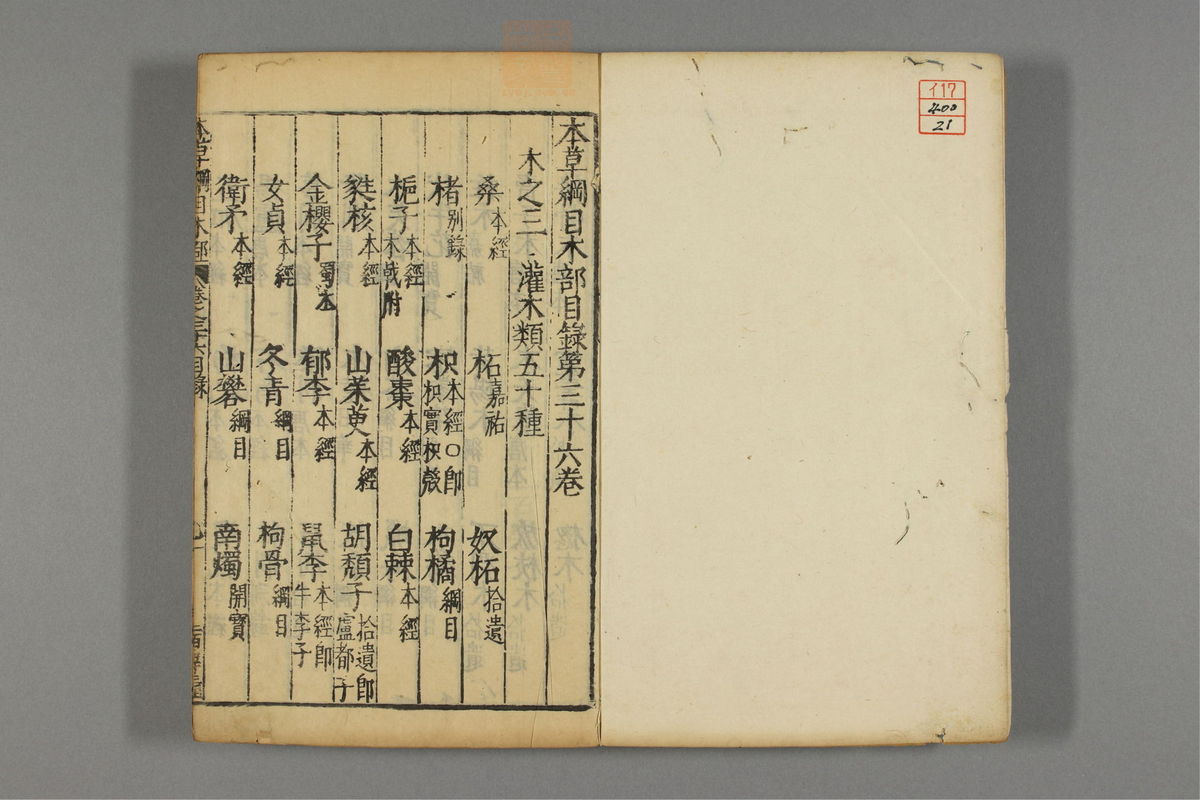 本草綱目木部目錄第三十六卷
木之三 灌木類五十種
桑本經 柘嘉祐 奴柘拾遺
楮別錄 枳本經○即枳實枳殼 枸橘綱目
梔子本經木戟附 酸棗本經 白棘本經
蕤核本經 山茱萸本經 胡頹子拾遺即盧都子
金櫻子蜀本 郁李本經 鼠李本經即牛李子
女貞本經 冬青綱目 枸骨綱目
衛矛本經 山礬綱目 南燭開寶
本草綱目木部 卷之三十六目錄
イ17
400
21